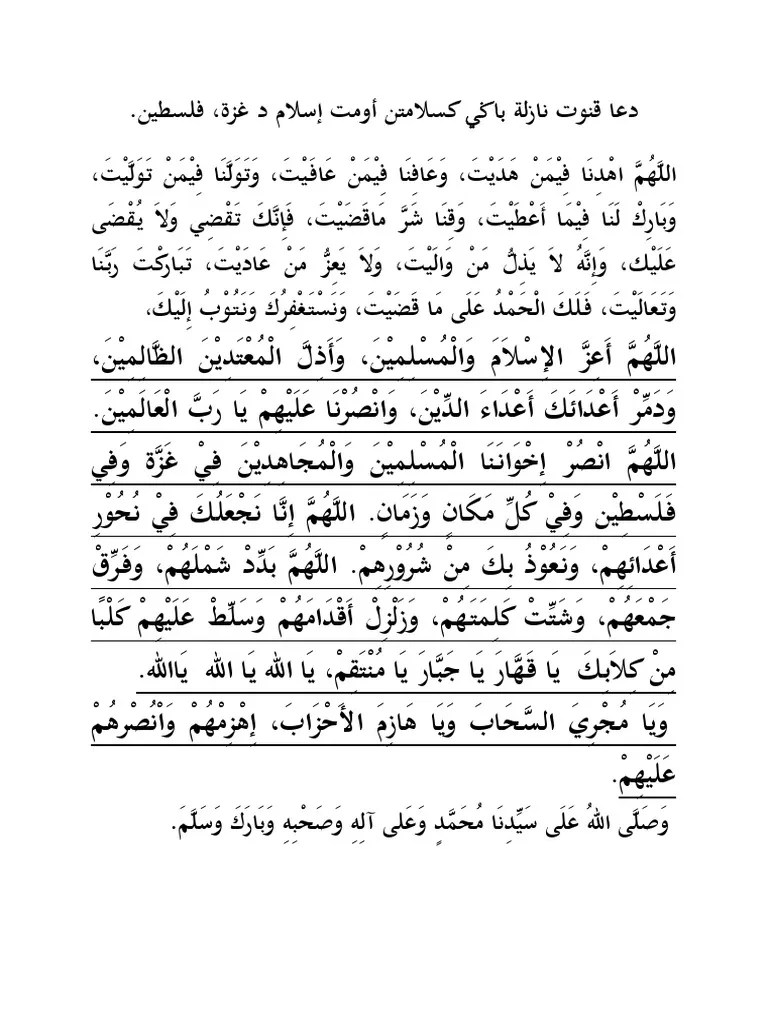 دعا قنوت نازلة باݢي كسلامتن أومت إسلام د غزة، فلسطين.
اللَّهُمَّ اهْدِنَا فِيْمَنْ هَدَيْتَ، وَعَافِنَا فِيْمَنْ عَافَيْتَ، وَتَوَلَّنَا فِيْمَنْ تَوَلَّيْتَ،
وَبَارِكْ لَنَا فِيْمَا أَعْطَيْتَ، وَقِنَا شَرَّ مَاقَضَيْتَ، فَإِنَّكَ تَقْضِي وَلاَ يُقْضَى
عَلَيْك، وَإِنَّهُ لاَ يَذِلُّ مَنْ وَالَيْتَ، وَلاَ يَعِزُّ مَنْ عَادَيْتَ، تَبَارَكْتَ رَبَّنَا
وَتَعَالَيْتَ، فَلَكَ الْحَمْدُ عَلَى مَا قَضَيْتَ، وَنَسْتَغْفِرُكَ وَنَتُوْبُ إِلَيْكَ،
اللَّهُمَّ أَعِزَّ الإِسْلاَمَ وَالْمُسْلِمِيْنَ، وَأَذِلَّ الْمُعْتَدِيْنَ الظَّالِمِيْنَ،
وَدَمِّرْ أَعْدَائَكَ أَعْدَاءَ الدِّيْنَ، وَانْصُرْنَا عَلَيْهِمْ يَا رَبَّ الْعَالَمِيْنَ.
اللَّهُمَّ انْصُرْ إِخْوَانَنَا الْمُسْلِمِيْنَ وَالْمُجَاهِدِيْنَ فِيْ غَزَّة وَفِي
فَلَسْطِيْن وَفِيْ كُلِّ مَكَانٍ وَزَمَانٍ. اللَّهُمَّ إِنَّا نَجْعَلُكَ فِيْ نُحُوْرِ
أَعْدَائِهِمْ، وَنَعُوْذُ بِكَ مِنْ شُرُوْرِهِمْ. اللَّهُمَّ بَدِّدْ شَمْلَهُمْ، وَفَرِّقْ
جَمْعَهُمْ، وَشَتِّتْ كَلِمَتَهُمْ، وَزَلْزِلْ أَقْدَامَهُمْ وَسَلِّطْ عَلَيْهِمْ كَلْبًا
مِنْ كِلاَبِكَ يَا قَهَّارَ يَا جَبَّارَ يَا مُنْتَقِمْ، يَا الله يَا الله يَاالله.
وَيَا مُجْرِيَ السَّحَابَ وَيَا هَازِمَ الأَحْزَابَ، إِهْزِمْهُمْ وَانْصُرْهُمْ
عَلَيْهِمْ.
وَصَلَّى اللهُ عَلَى سَيِّدِنَا مُحَمَّدٍ وَعَلى آلِهِ وَصَحْبِهِ وَبَارَكَ وَسَلَّمَ.